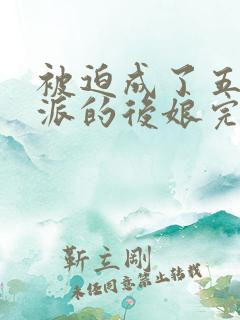 被迫成了五
派的後娘完
靳立剛
未经同意禁止转载